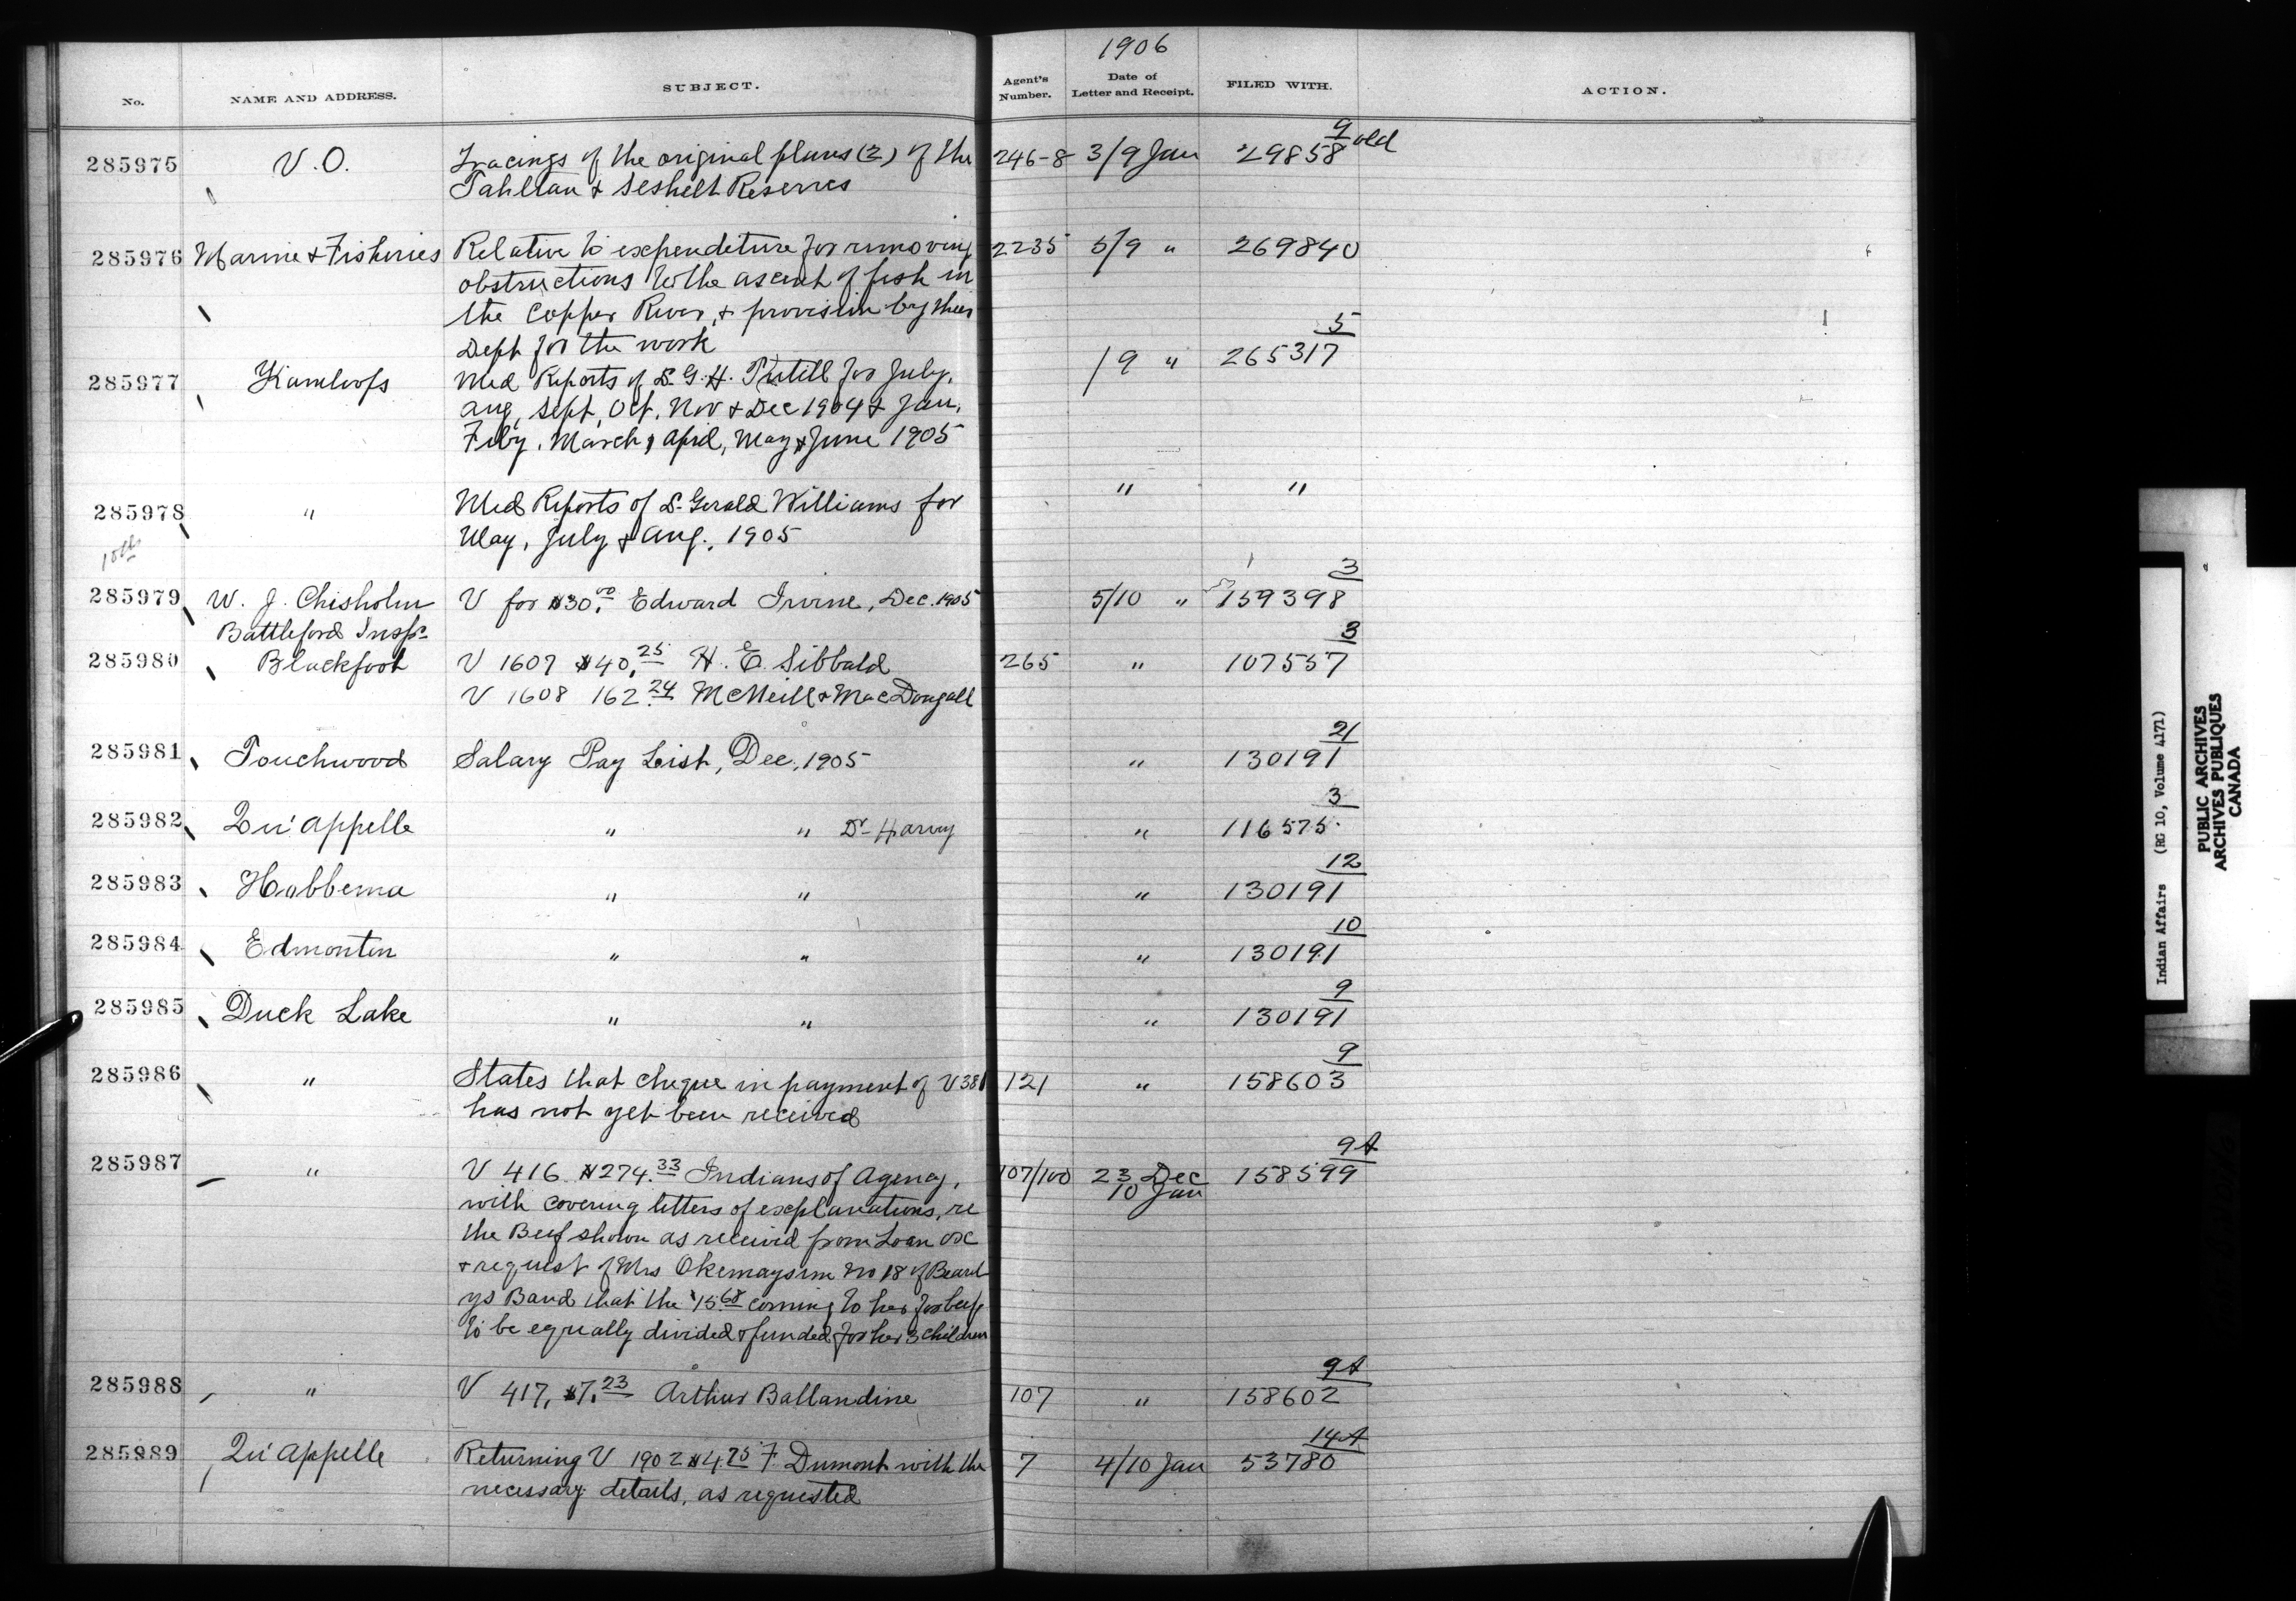 1906
No. NAME AND ADDRESS. SUBJECT. Agent's Number. Date of Letter and Receipt. FILED WITH. ACTION.
9 old
285975 V.O. Tracings of the original plans (2) of the 246-8 3/9 Jan 29858
Tahltan & Seshelt Reserves
285976 Marine & Fisheries Relative to expenditure for removing 2235 5/9 " 269840
obstructions to the ascent of fish in
the Copper River, & provision by their
Dept for the work
5
285977 Kamloops Med Reports of Dr G. H. Tutill for July, /9 " 265317
Aug, Sept, Oct, Nov & Dec 1904 & Jan,
Feby, March, April, May & June 1905
285978 " Med Reports of Dr Gerald Williams for " "
May, July & Aug., 1905
10th
3
285979 W. J. Chisholm V for $30.00 Edward Irvine, Dec. 1905 5/10 " 159398
Battleford Insp.
3
285980 Blackfoot V 1607 $40.25 H. E. Sibbald 265 " 107557
V 1608 162.24 McNeill & MacDougall
21
285981 Touchwood Salary Pay List, Dec, 1905 " 130191
3
285982 Qu'Appelle " " Dr Harvy " 116575
12
285983 Hobbema " " " 130191
10
285984 Edmonton " " " 130191
9
285985 Duck Lake " " " 130191
9
285986 " States that cheque in payment of V 381 121 " 158603
has not yet been received
9A
285987 " V 416 $274.33 Indians of Agency, 107/100 23 Dec 158599
10 Jan
with covering letters of explanations, re
the Beef shown as received from Loan ox
& request of Mrs Okemaysim No 18 of Beard
ys Band that the $15.68 coming to her for beef
to be equally divided & funded for her 3 children
9A
285988 " V 417, $7.23 Arthur Ballandine 107 " 158602
14A
285989 Qu'Appelle Returning V 1902 $4.75 F. Dumont with the 7 4/10 Jan 53780
necessary details, as requested
Indian Affairs (RG 10, Volume 4171)
PUBLIC ARCHIVES
ARCHIVES PUBLIQUES
CANADA